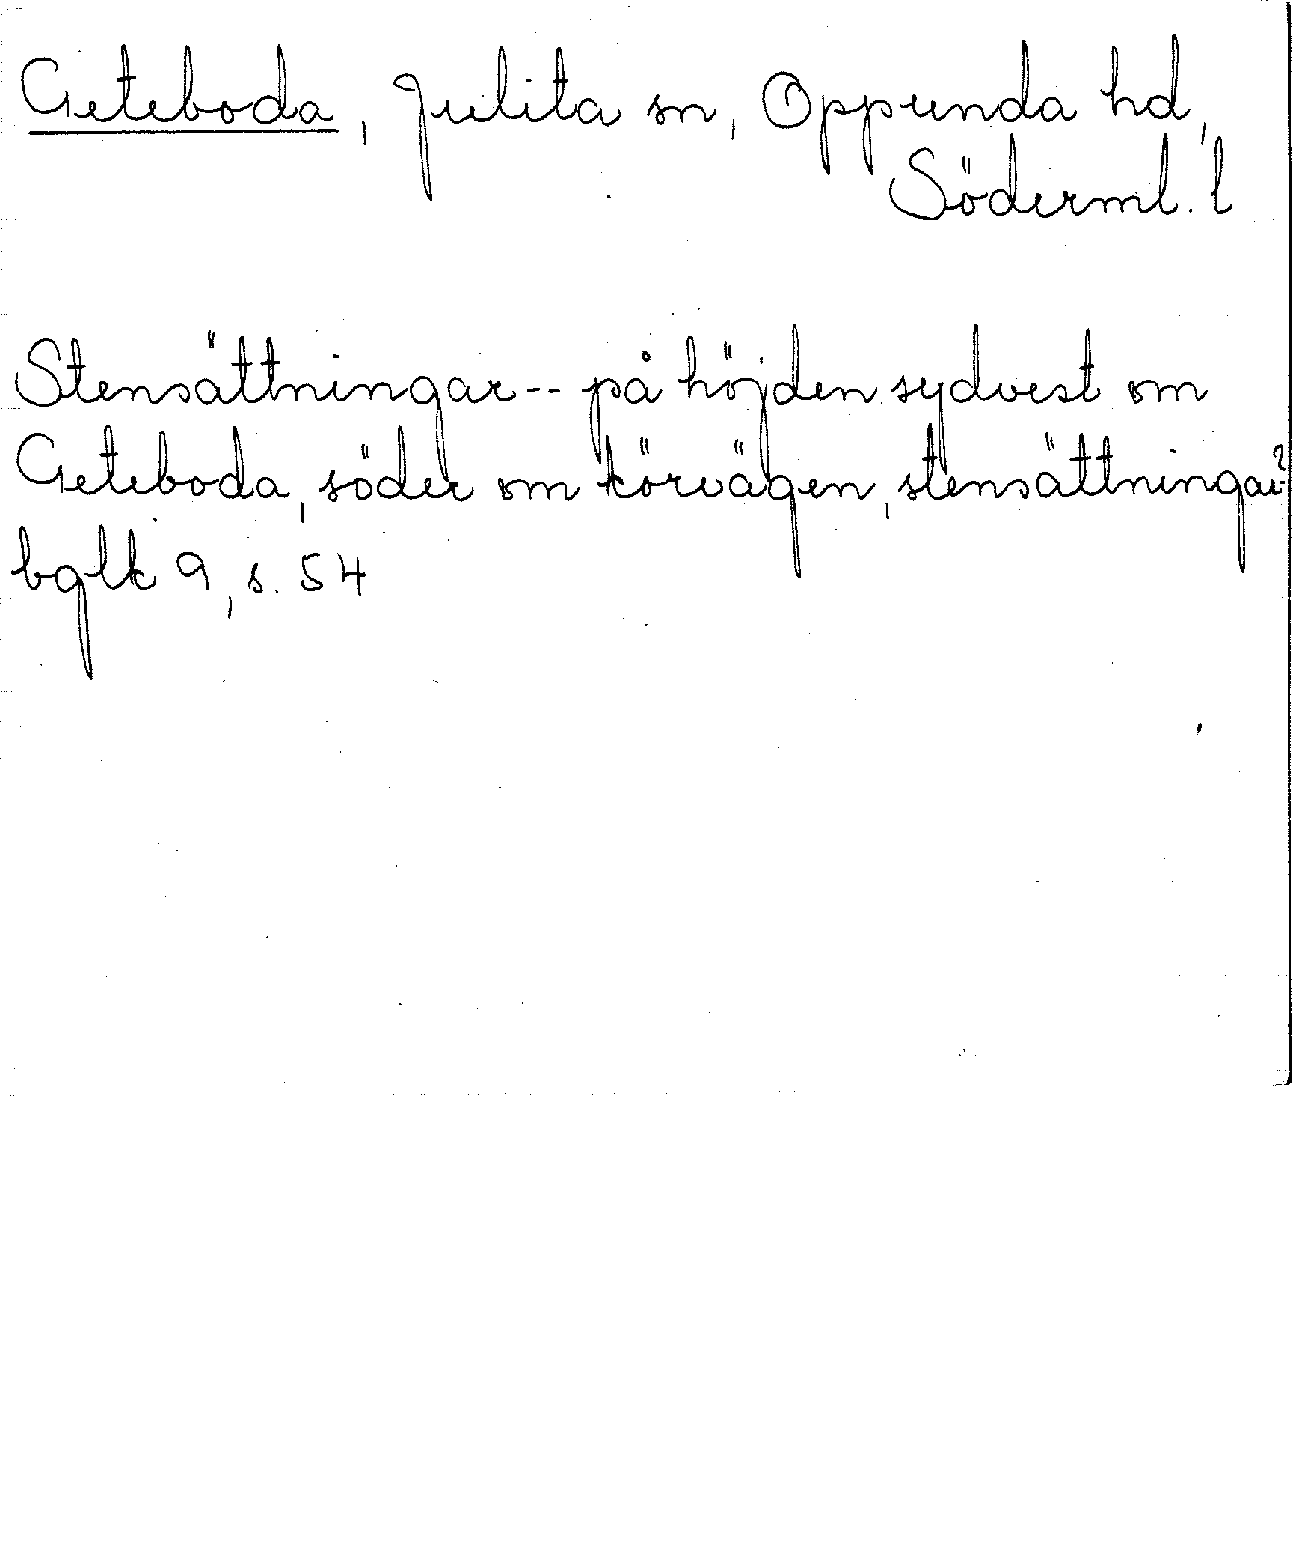 Geteboda, Julita sn, Oppunda hd,
Söderml. l
Stensättningar -- på höjden sydvest om
Geteboda, söder om körvägen, stensättningar?
bglk 9, s. 54